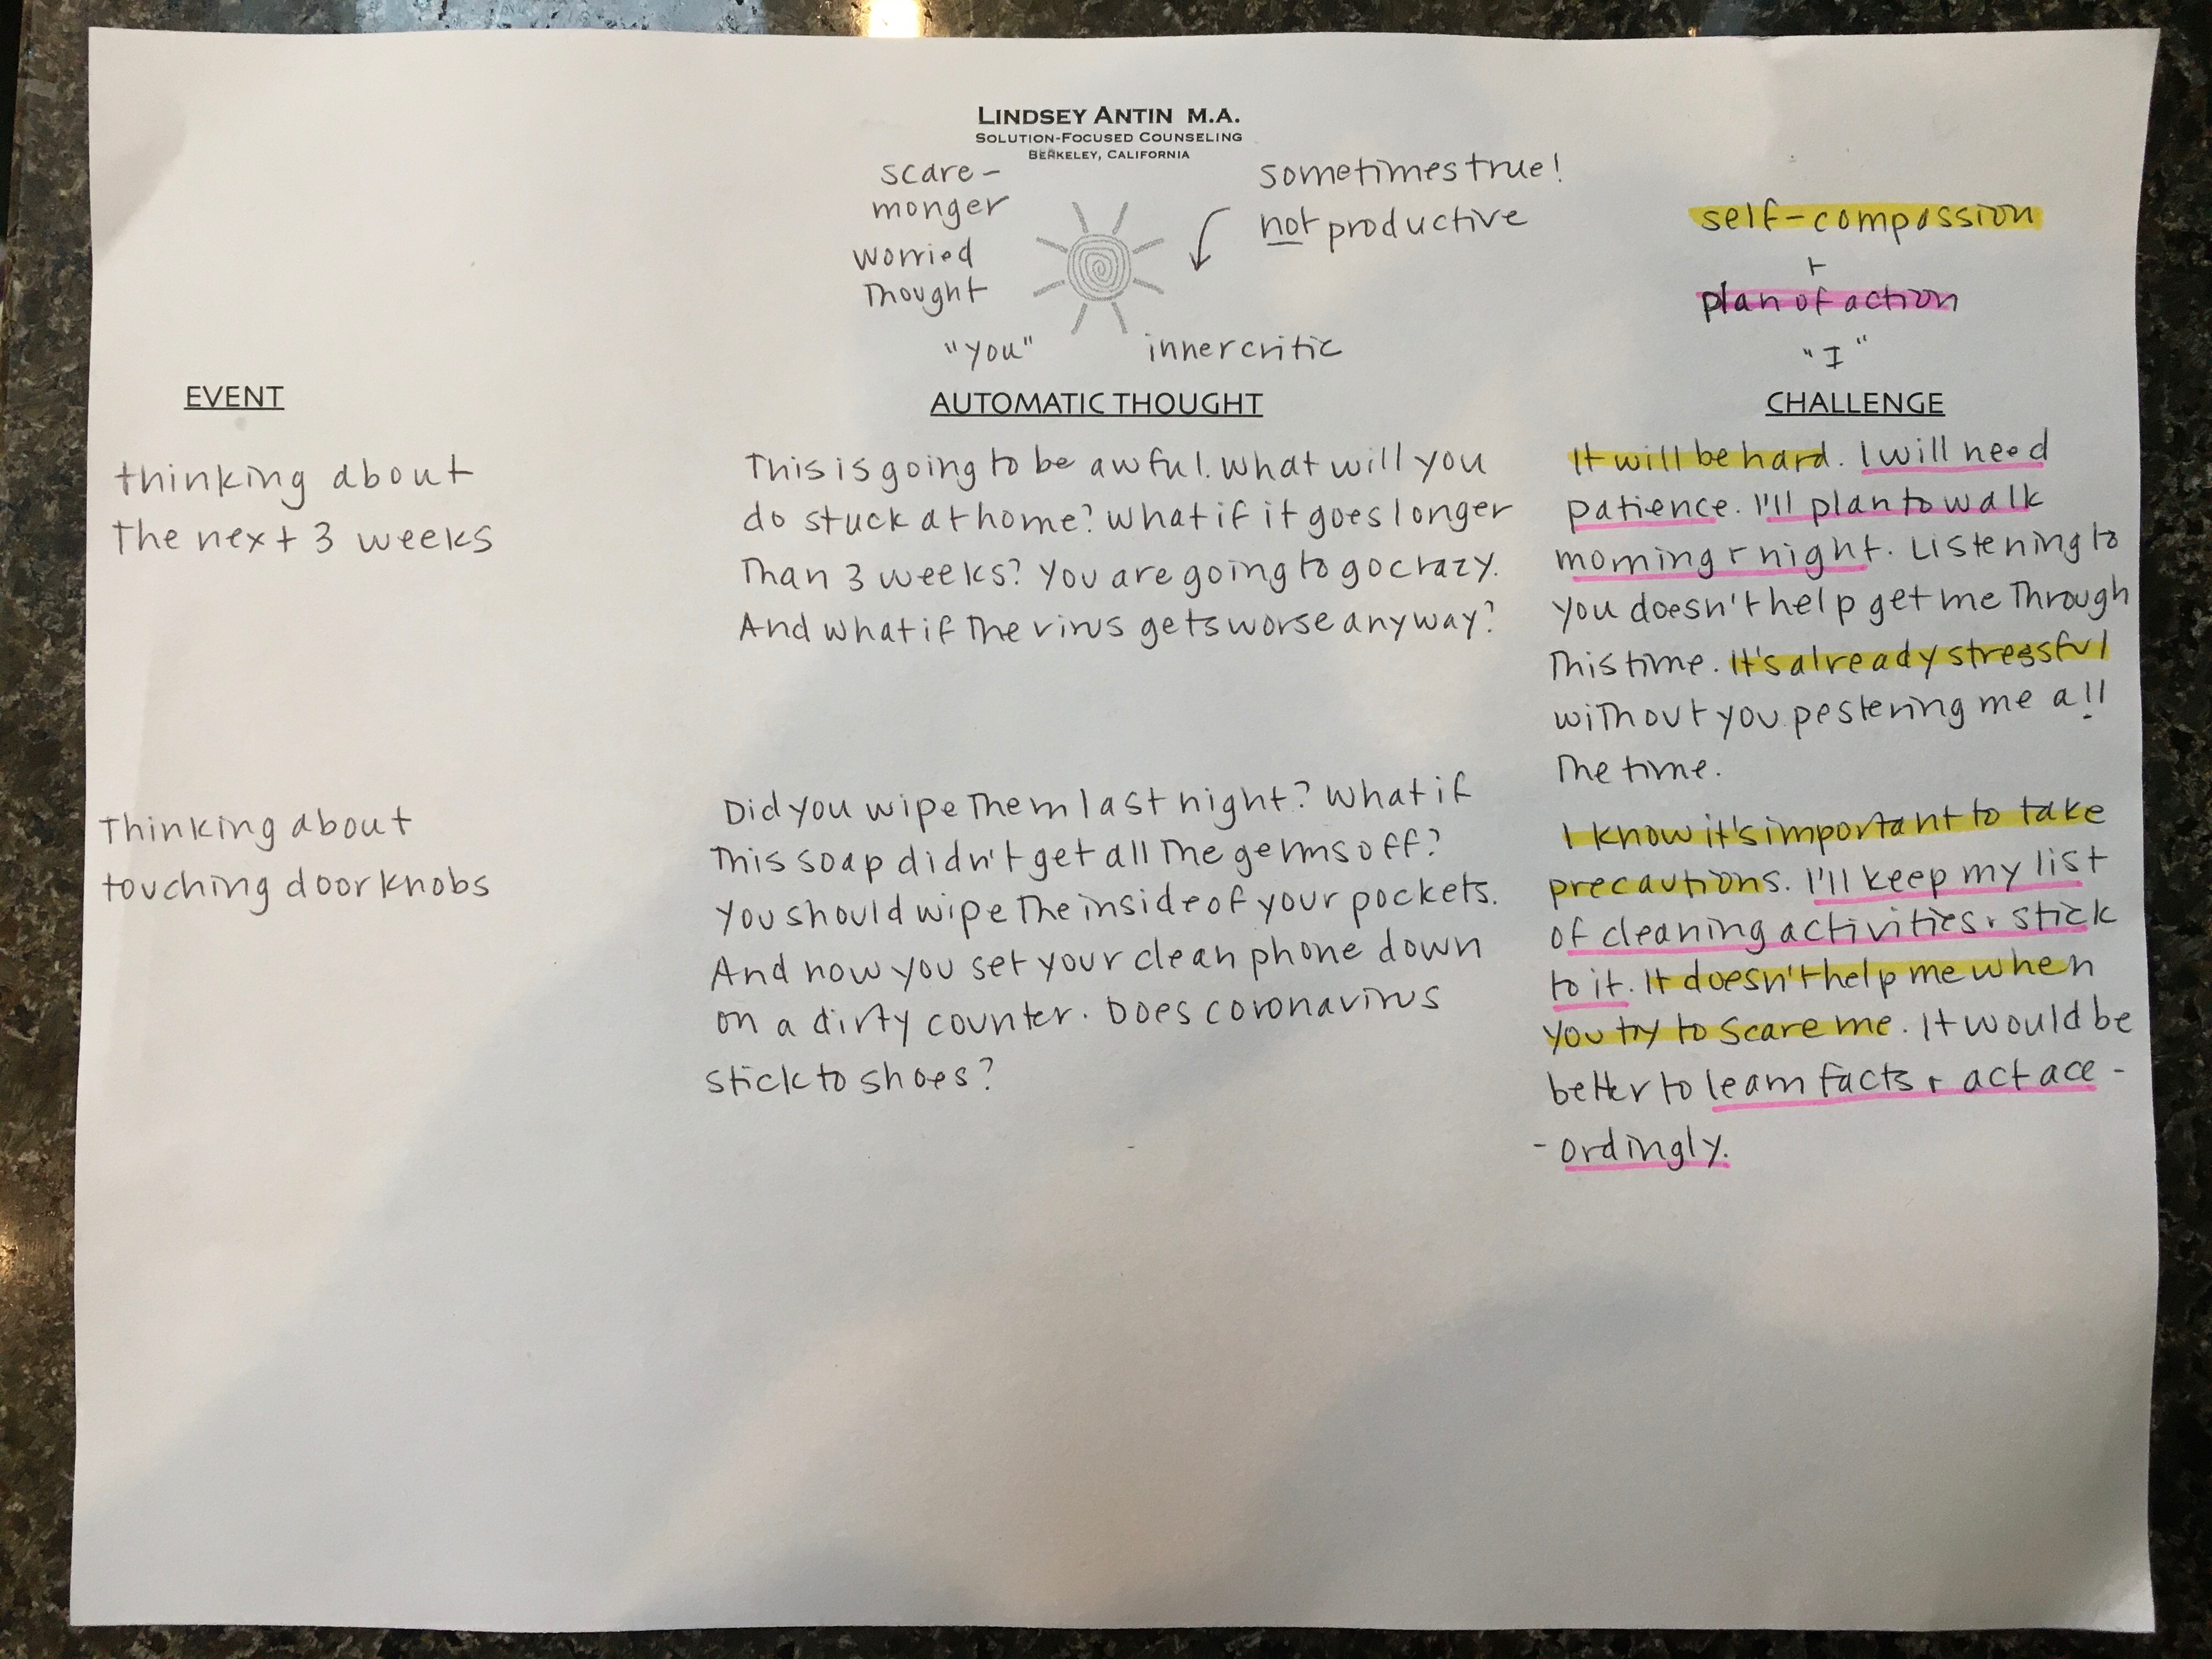 LINDSEY ANTIN M.A.
SOLUTION-FOCUSED COUNSELING
BERKELEY, CALIFORNIA
scare-
monger
worried
Thought
"you"
sometimes true!
not productive
inner critic
self-compassion
+
plan of action
"I"
EVENT
thinking about
The next 3 weeks
Thinking about
touching doorknobs
AUTOMATIC THOUGHT
This is going to be awful. What will you
do stuck at home? What if it goes longer
Than 3 weeks? You are going to go crazy.
And what if The virus gets worse anyway?
Did you wipe Them last night? What if
This soap didn't get all The germs off?
You should wipe The inside of your pockets.
And now you set your clean phone down
on a dirty counter. Does coronavirus
stick to shoes?
CHALLENGE
It will be hard. I will need
patience. I'll plan to walk
morning + night. Listening to
you doesn't help get me Through
This time. It's already stressful
without you pestering me all
The time.
I know it's important to take
precautions. I'll keep my list
of cleaning activities + stick
to it. It doesn't help me when
you try to scare me. It would be
better to learn facts + act acc-
-ordingly.